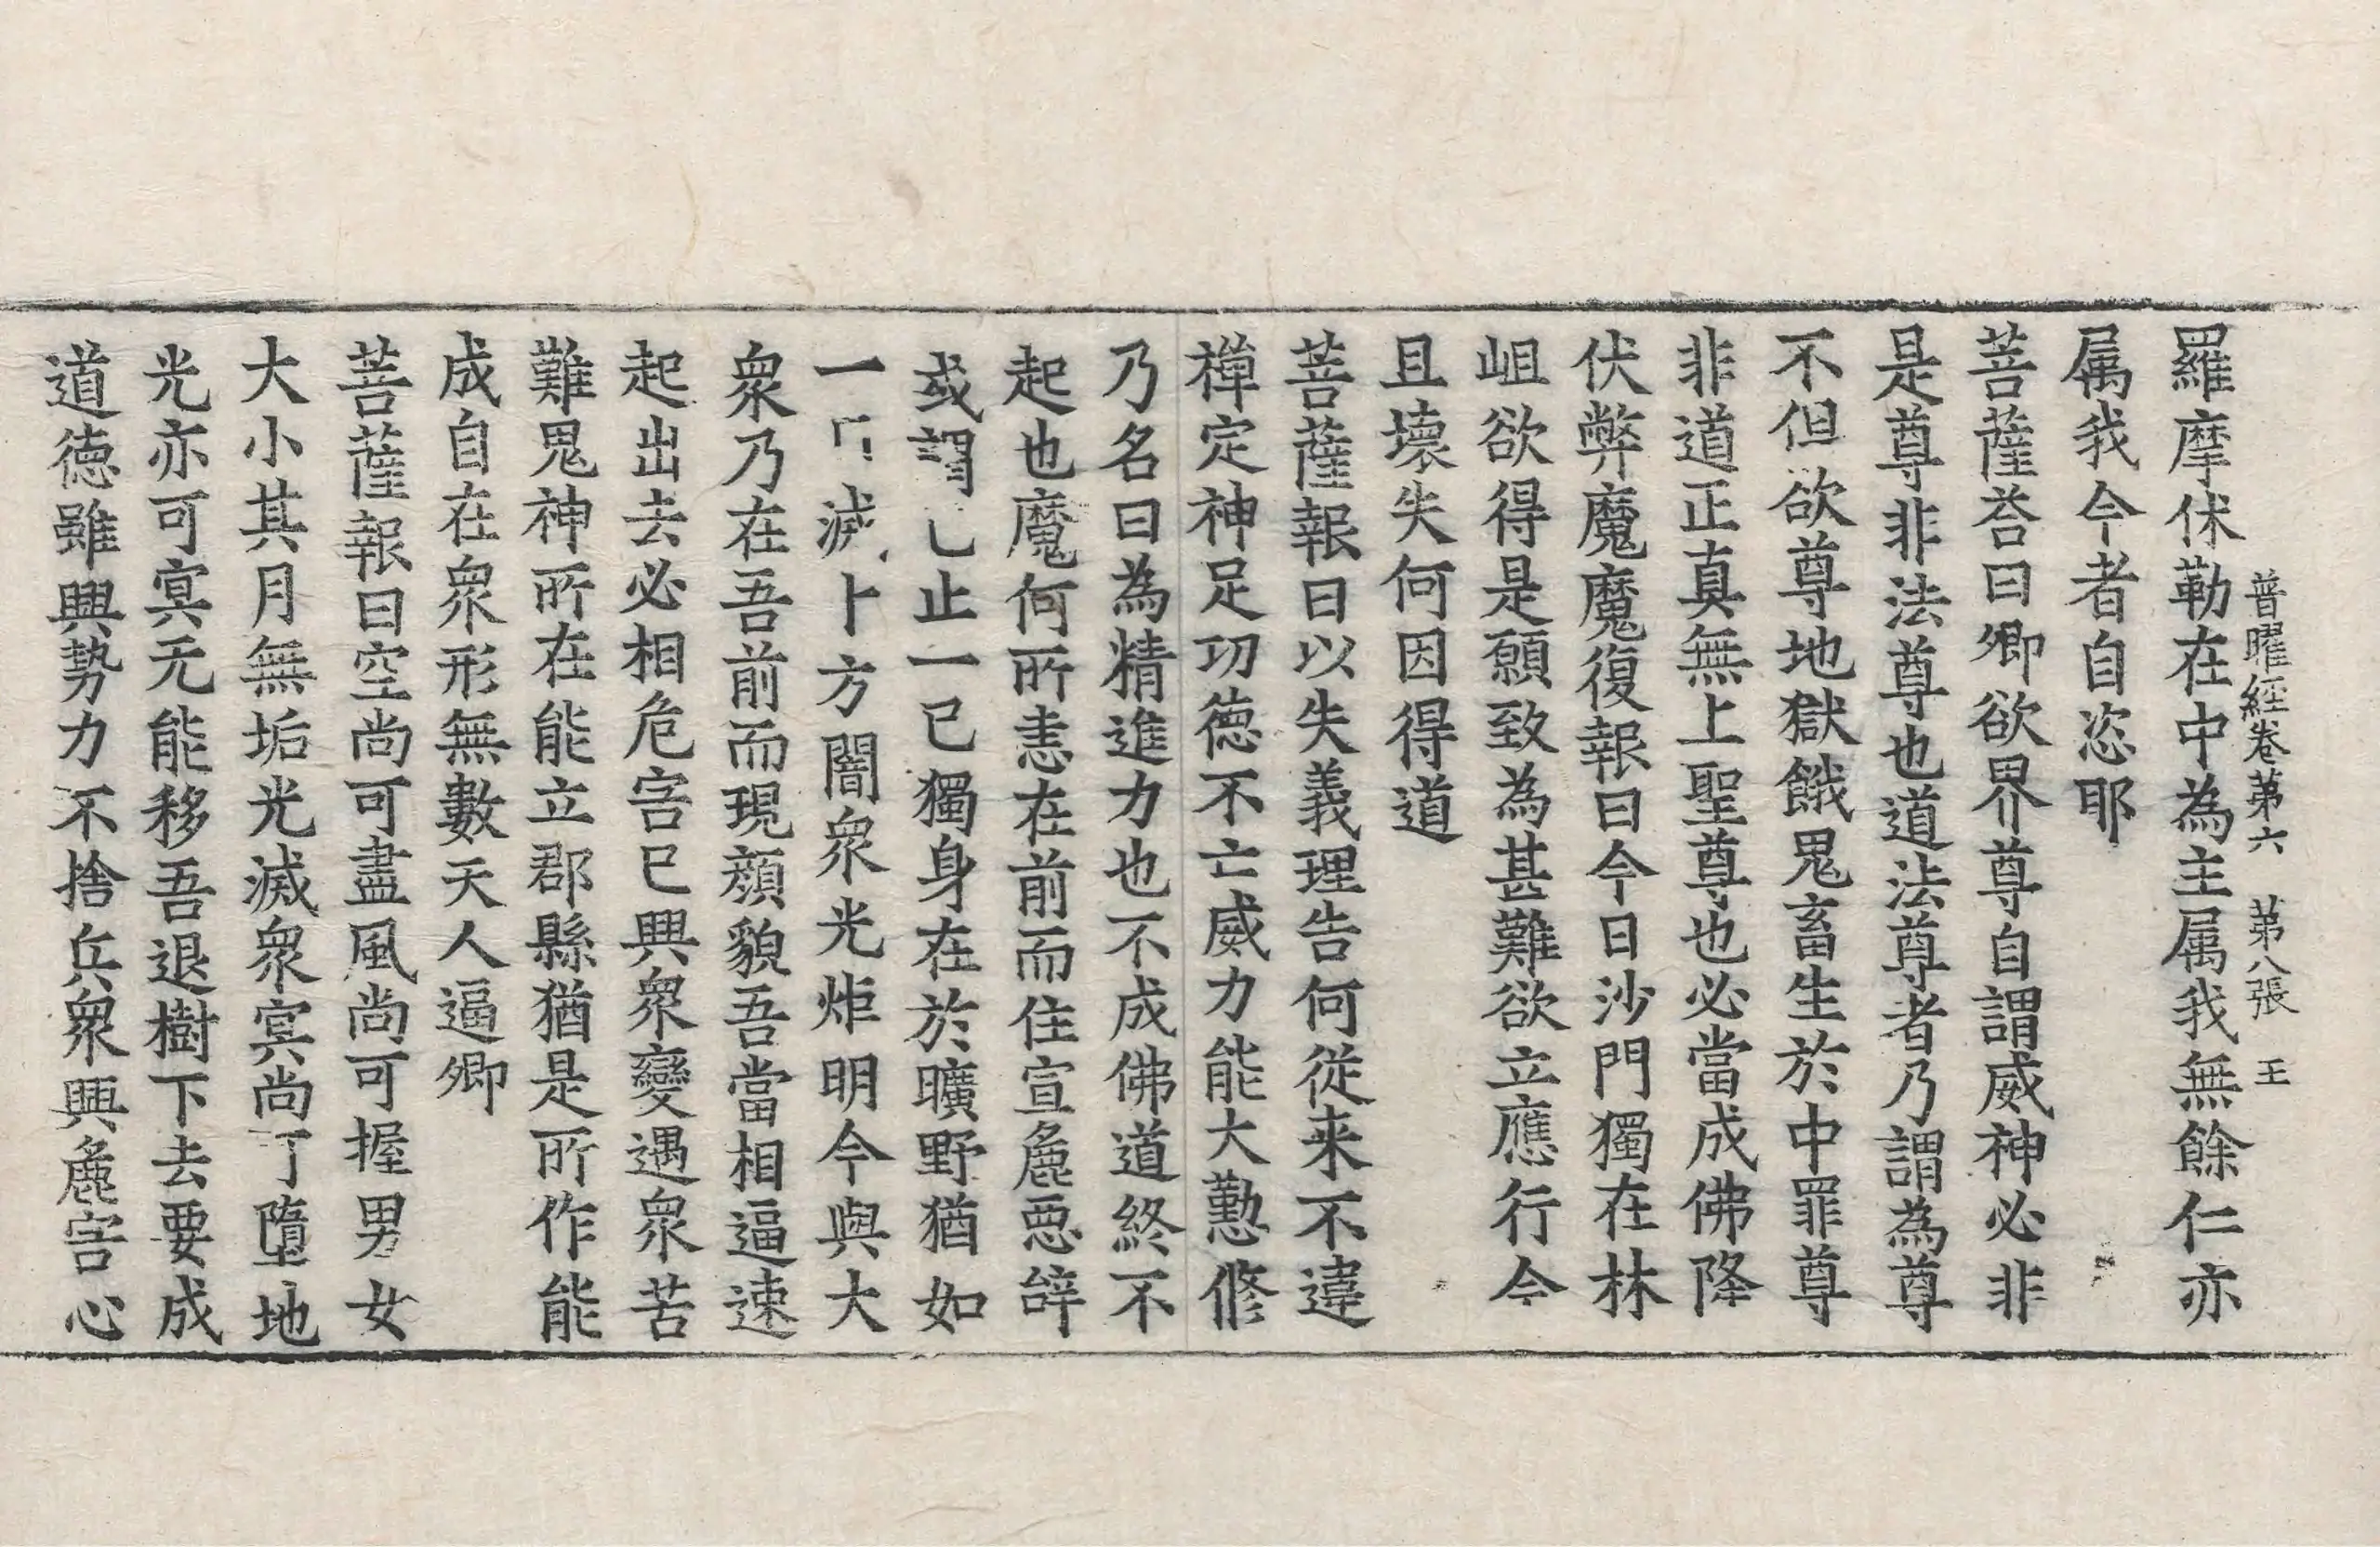 普曜經卷第六 第八張 王
羅摩伏勒在中為主属我無餘仁亦
属我今者自恣耶
菩薩荅曰卿欲界尊自謂威神必非
是尊非法尊也道法尊者乃謂為尊
不但欲尊地獄餓鬼畜生於中罪尊
非道正真無上聖尊也必當成佛降
伏弊魔魔復報曰今日沙門獨在林
岨欲得是願致為甚難欲立應行今
且壞失何因得道
菩薩報曰以失義理告何從来不違
禪定神足功德不亡威力能大懃修
乃名曰為精進力也不成佛道終不
起也魔何所恚在前而住宣麁惡辝
或謂止一已獨身在於曠野猶如
一滅方闇衆光炬明今與大
衆乃在吾前而現顏貌吾當相逼速
起出去必相危害已興衆變遇衆苦
難鬼神所在能立郡縣猶是所作能
成自在衆形無數天人逼卿
菩薩報曰空尚可盡風尚可握男女
大小其月無垢光滅衆冥尚墮地
光亦可冥无能移吾退樹下去要成
道德雖興勢力不捨兵衆興麁害心